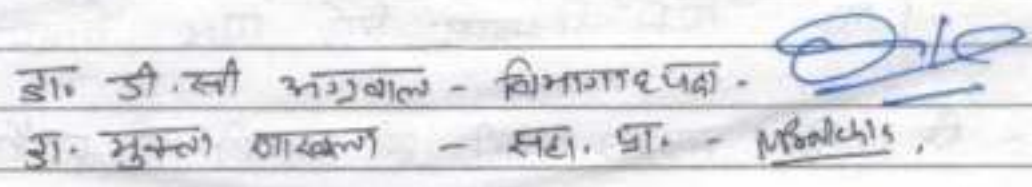 डॉ. डी.सी अग्रवाल - विभागाध्यक्ष -
डॉ. मुक्ता - सहा. प्रा. -